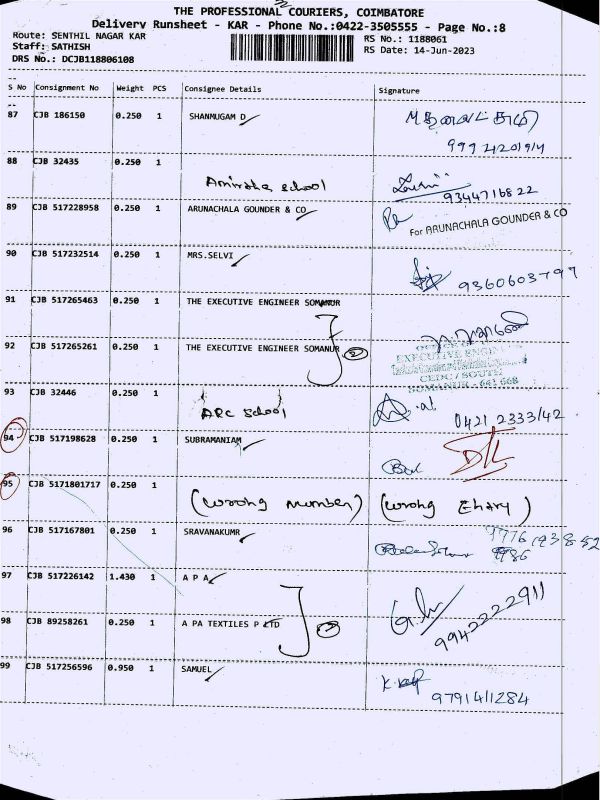 THE PROFESSIONAL COURIERS, COIMBATORE
Delivery Runsheet - KAR - Phone No.:0422-3505555 - Page No.:8
Route: SENTHIL NAGAR KAR
RS No.: 1188061
Staff: SATHISH
RS Date: 14-Jun-2023
DRS No.: DCJB118806108
S No Consignment No Weight PCS Consignee Details Signature
87 CJB 186150 0.250 1 SHANMUGAM D
88 CJB 32435 0.250 1
school
9344716822
89 CJB 517228958 0.250 1 ARUNACHALA GOUNDER & CO
For ARUNACHALA GOUNDER & CO
90 CJB 517232514 0.250 1 MRS.SELVI
9360603797
91 CJB 517265463 0.250 1 THE EXECUTIVE ENGINEER SOMANUR
92 CJB 517265261 0.250 1 THE EXECUTIVE ENGINEER SOMANUR 2
SOMANUR - 641 668
93 CJB 32446 0.250 1
ARC school
0421 2333142
94 CJB 517198628 0.250 1 SUBRAMANIAM
95 CJB 5171801717 0.250 1
(wrong number) (wrong Entry)
96 CJB 517167801 0.250 1 SRAVANAKUMR
97 CJB 517226142 1.430 1 A P A
98 CJB 89258261 0.250 1 A PA TEXTILES P LTD 2
9942222911
99 CJB 517256596 0.950 1 SAMUEL
9791411284